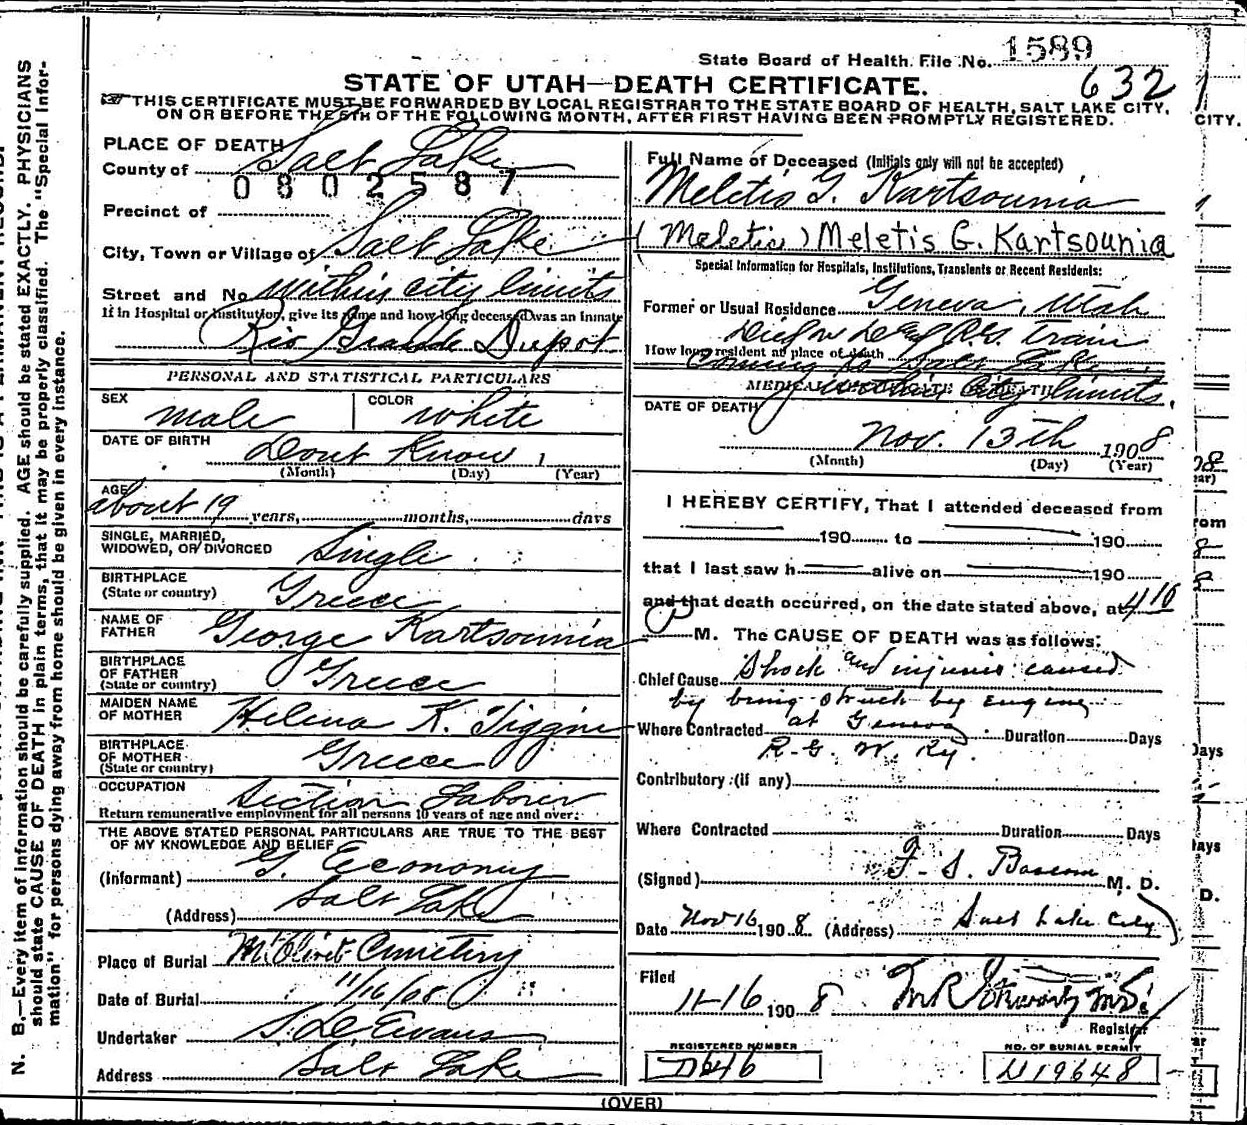 State Board of Health File No. 1589
632
STATE OF UTAH—DEATH CERTIFICATE.
THIS CERTIFICATE MUST BE FORWARDED BY LOCAL REGISTRAR TO THE STATE BOARD OF HEALTH, SALT LAKE CITY,
ON OR BEFORE THE 5TH OF THE FOLLOWING MONTH, AFTER FIRST HAVING BEEN PROMPTLY REGISTERED.
PLACE OF DEATH
County of Salt Lake
0802587
Precinct of
City, Town or Village of Salt Lake
Street and No within city limits
If in Hospital or Institution, give its name and how long deceased was an inmate
Rio Grande Depot
PERSONAL AND STATISTICAL PARTICULARS
SEX male COLOR white
DATE OF BIRTH Dont Know
(Month) (Day) (Year)
AGE about 19 years, months, days
SINGLE, MARRIED,
WIDOWED, OR DIVORCED Single
BIRTHPLACE
(State or country) Greece
NAME OF
FATHER George Kartsounia
BIRTHPLACE
OF FATHER
(State or country) Greece
MAIDEN NAME
OF MOTHER Helena K.
BIRTHPLACE
OF MOTHER
(State or country) Greece
OCCUPATION Section Laborer
Return remunerative employment for all persons 10 years of age and over:
THE ABOVE STATED PERSONAL PARTICULARS ARE TRUE TO THE BEST
OF MY KNOWLEDGE AND BELIEF
(Informant) G. Economy
(Address) Salt Lake
Place of Burial Mt Olivet Cemetery
Date of Burial 11/16/08
Undertaker Evans
Address Salt Lake
Full Name of Deceased (Initials only will not be accepted)
Meletis G. Kartsounia
(Meletis) Meletis G. Kartsounia
Special Information for Hospitals, Institutions, Transients or Recent Residents:
Former or Usual Residence Geneva, Utah
Died on D&R.G. Train
How long resident at place of death coming to Salt Lake
MEDICAL CERTIFICATE OF DEATH
within City limits.
DATE OF DEATH
Nov. 13th 1908
(Month) (Day) (Year)
I HEREBY CERTIFY, That I attended deceased from
190 to 190
that I last saw h alive on 190
and that death occurred, on the date stated above, at 4 10
P M. The CAUSE OF DEATH was as follows:
Chief Cause Shock and injuries caused
by being struck by engine
Where Contracted at Geneva Duration Days
R. G. W. Ry.
Contributory (if any)
Where Contracted Duration Days
(Signed) F. S. Bascom M. D.
Date Nov 16 1908 (Address) Salt Lake City
Filed
11-16 1908
Registrar
REGISTERED NUMBER
D646
NO. OF BURIAL PERMIT
19648
(OVER)
N. B.—Every item of information should be carefully supplied. AGE should be stated EXACTLY. PHYSICIANS
should state CAUSE OF DEATH in plain terms, that it may be properly classified. The "Special Infor-
mation" for persons dying away from home should be given in every instance.
CITY.
Days
D.